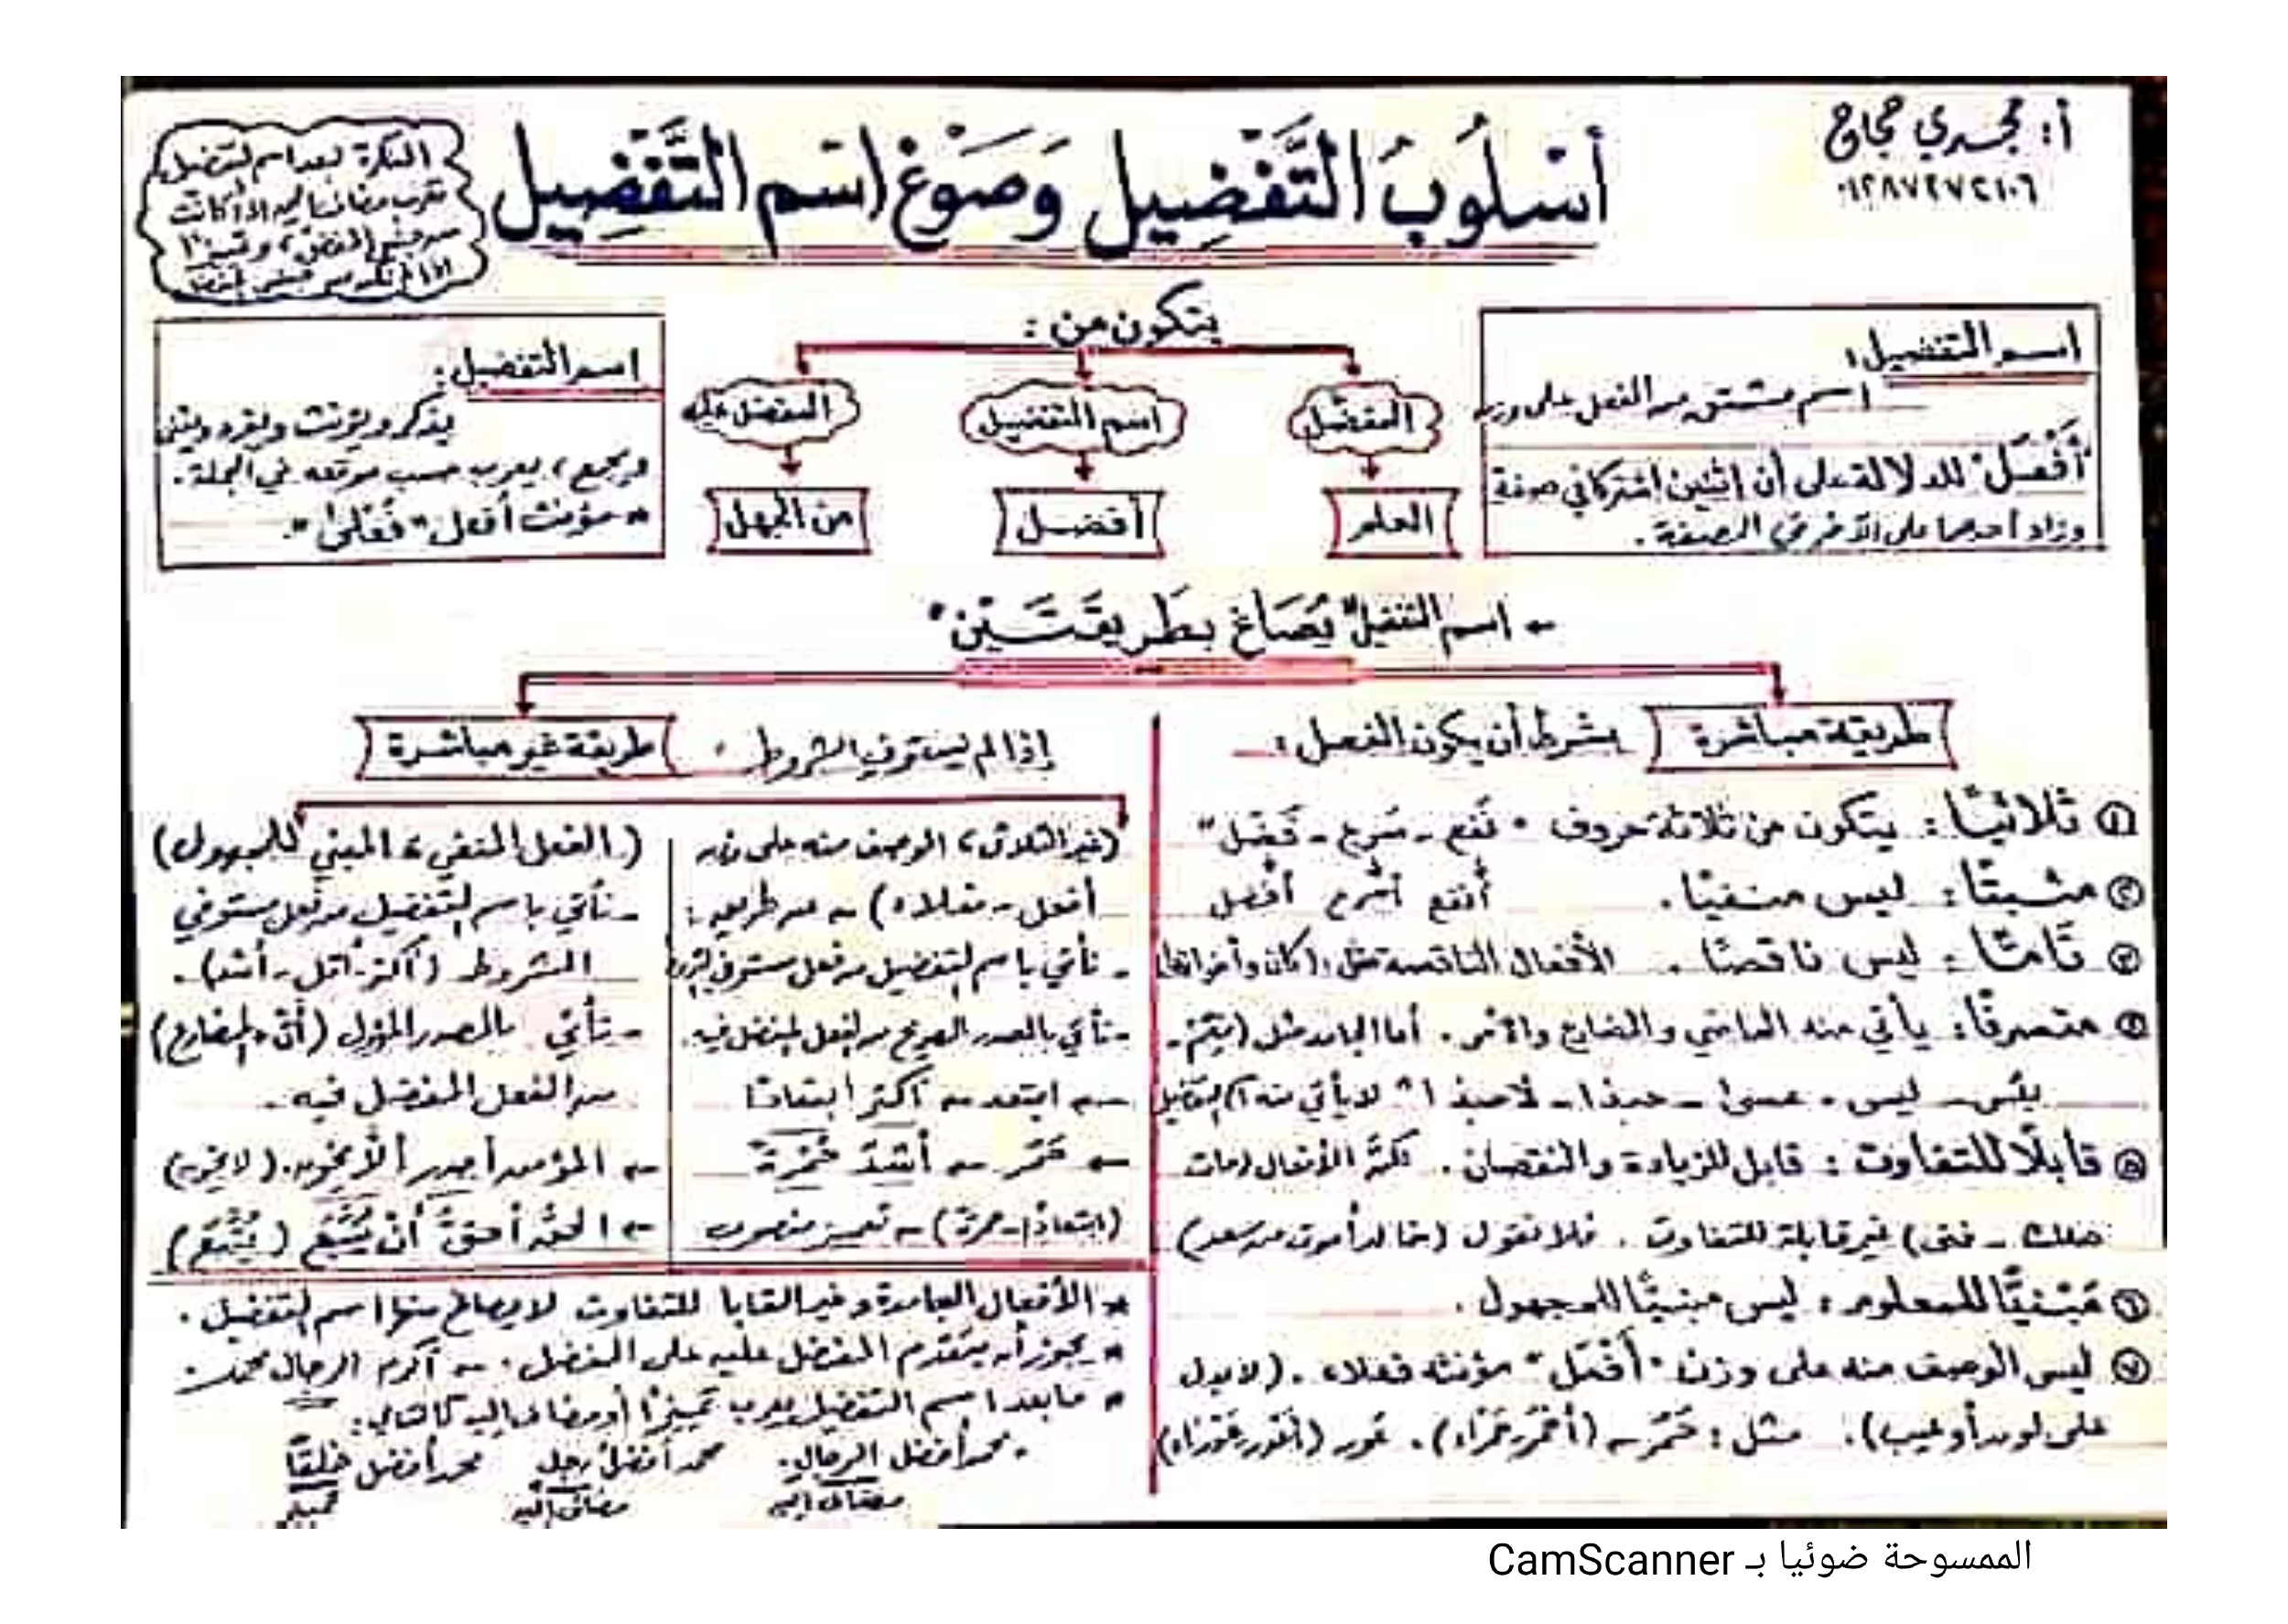 أ: مجدي حجاج
٠١٢٨٧٢٧٢١٠٦
أسْلُوبُ التَّفْضِيل وَصَوْغ اسْم التَّفْضِيل
النكرة بعد اسم التفضيل
تعرب مضافا إليه إذا كانت
من جنس المفضل، وتمييزا
إذا لم تكن من جنس
اسم التفضيل:
اسم مشتق من الفعل على وزن
"أَفْعَل" للدلالة على أن اثنين اشتركا في صفة
وزاد أحدهما على الآخر في الصفة.
يتكون من:
المفضل
اسم التفضيل
المفضل عليه
العلم
أفضل
من الجهل
اسم التفضيل:
يذكر ويؤنث ويفرد ويثنى
ويجمع، يعرب حسب موقعه في الجملة.
* مؤنث أفعل "فُعْلَى".
- اسم التفضيل "يُصَاغ بِطَرِيقَتَيْن"
طريقة مباشرة
بشرط أن يكون الفعل:
① ثلاثيًا: يتكون من ثلاثة حروف " نفع - شرع - فضل"
② مثبتًا: ليس منفيًا. أنفع أشرع أفضل
③ تامًّا: ليس ناقصًا. الأفعال الناقصة مثل: (كان وأخواتها)
④ متصرفًا: يأتي منه الماضي والمضارع والأمر. أما الجامد مثل (نِعْمَ -
بئس - ليس - عسى - حبذا - لا حبذا) لا يأتي منه اسم التفضيل
⑤ قابلًا للتفاوت: قابل للزيادة والنقصان. لكن الأفعال (مات
هلك - فنى) غير قابلة للتفاوت. فلا نقول (خالد أموت من سعد)
⑥ مَبْنيًّا للمعلوم: ليس مبنيًا للمجهول.
⑦ ليس الوصف منه على وزن "أَفْعَل" مؤنثه فعلاء. (لا يدل
على لون أو عيب). مثل: حَمُرَ - (أحْمَر حَمْرَاء). عَور (أعْوَر عَوْرَاء)
إذا لم يستوفِ الشروط.
طريقة غير مباشرة
(غير الثلاثي، الوصف منه على وزن
أفعل - فعلاء) - عن طريق:
- نأتي باسم التفضيل من فعل مستوفي الشروط
- نأتي بالمصدر الصريح من الفعل المفضل فيه.
- ابتعد - أكثر ابتعادًا
- حَمُرَ - أشَدّ حُمْرَةً
(ابتعادًا - حمرة) - تمييز منصوب
(الفعل المنفي، المبني للمجهول)
- نأتي باسم التفضيل من فعل مستوفي
الشروط (أكثر - أقل - أشد).
- نأتي بالمصدر المؤول (أن + المضارع)
من الفعل المفضل فيه.
- المؤمن أجدر ألّا يخون. (لا يخون)
- الحق أحقّ أنْ يُتَّبَع (يُتَّبَع)
* الأفعال الجامدة وغير القابلة للتفاوت لا يصاغ منها اسم التفضيل.
* يجوز أن يتقدم المفضل عليه على المفضل. - أكرم الرجال محمد.
* ما بعد اسم التفضيل يعرب تمييزًا أو مضاف إليه كالتالي:
- محمد أفضل الرجال. محمد أفضل رجل محمد أفضل خلقًا
مضاف إليه مضاف إليه تمييز
الممسوحة ضوئيا بـ CamScanner